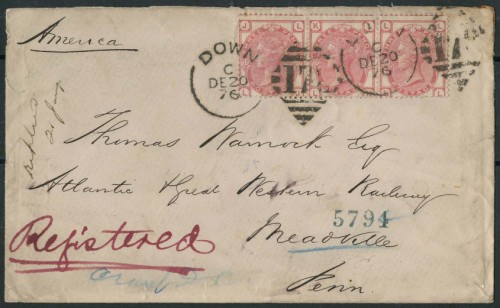 America
DOWN
C
DE 20
76
17
C
DE 20
76
17
Thomas Warnock Esq
Atlantic & Great Western Railway
5794
Meadville
Penn.
Registered